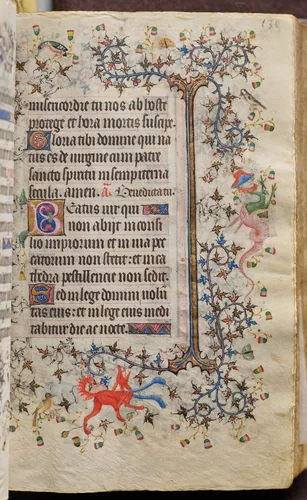 135
misericordie tu nos ab hoste
protege et hora mortis suscipe.
Gloria tibi domine qui na
tus es de virgine cum patre
sancto spiritu in sempiterna
secula. amen. a. Benedicta tu.
Beatus vir qui
non abijt in consi
lio impiorum et in via pec
catorum non stetit: et in ca
thedra pestilencie non sedit.
Sed in lege domini volun
tas eius: et in lege eius medi
tabitur die ac nocte.